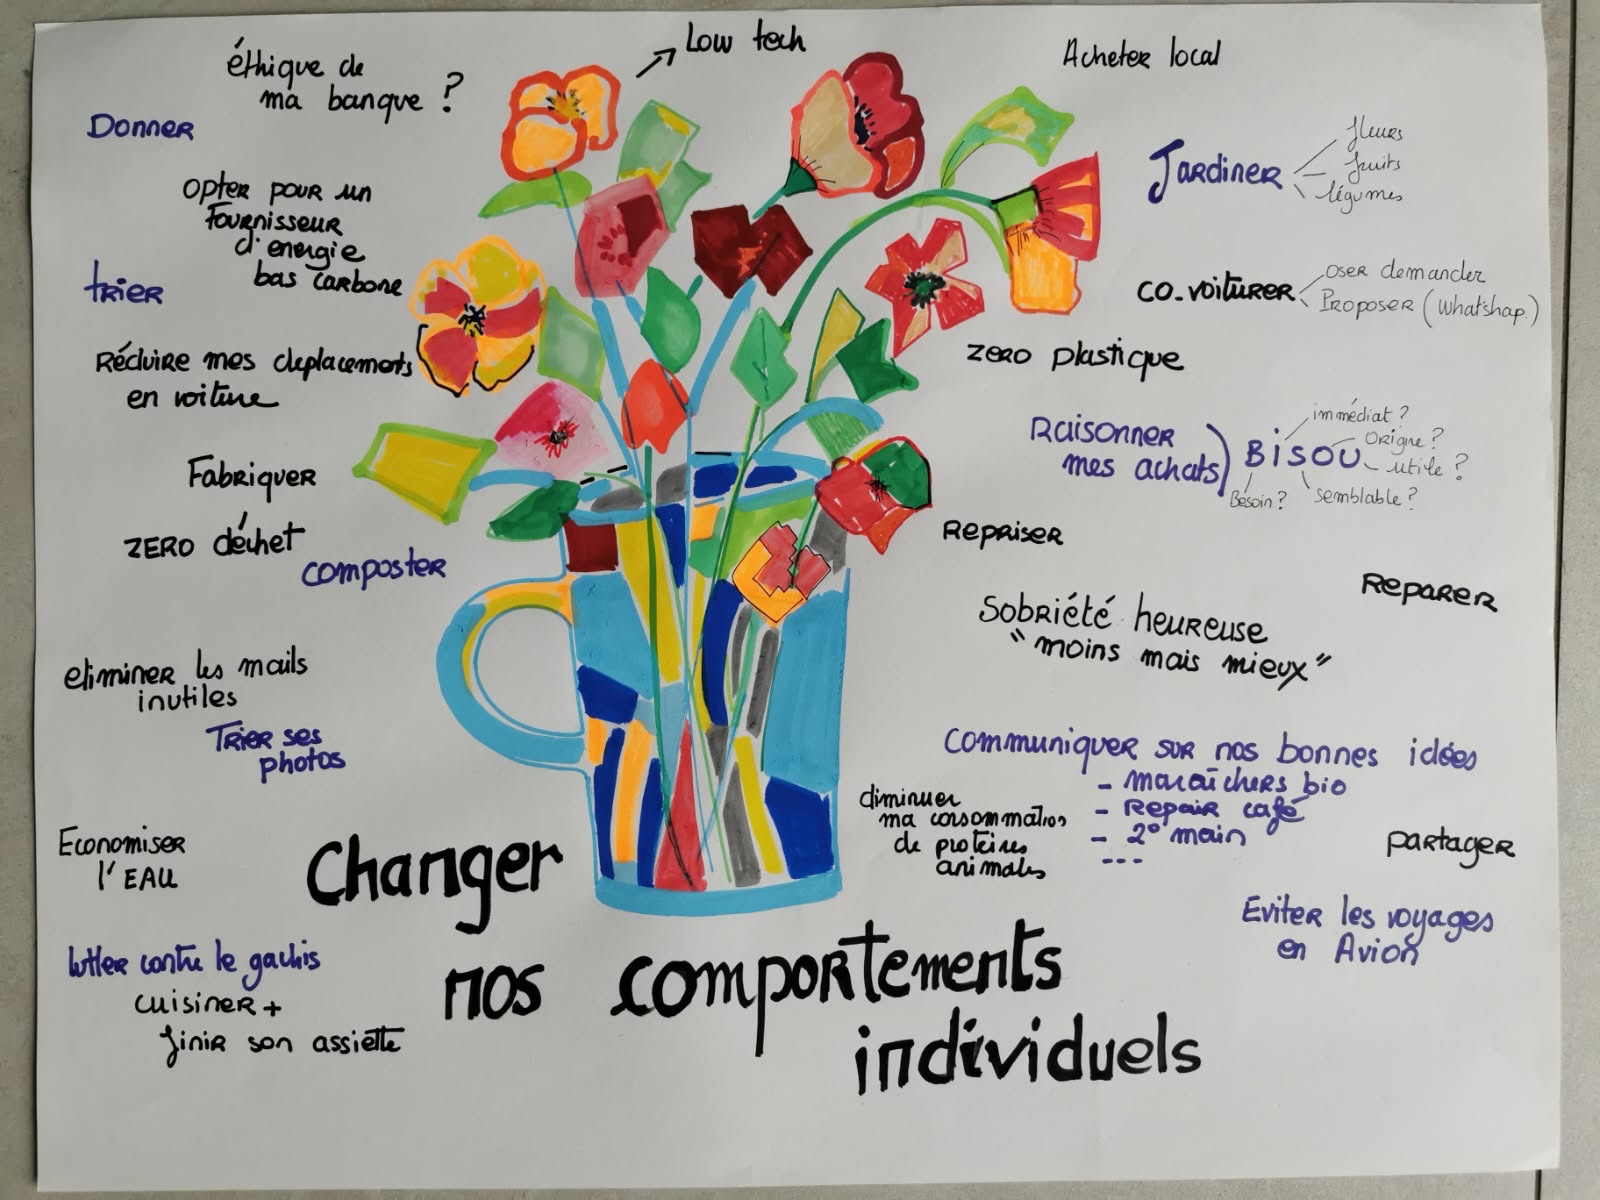 éthique de
ma banque ?
Low tech
Acheter local
Donner
Opter pour un
Fournisseur
d'énergie
bas carbone
trier
Réduire mes deplacements
en voiture
Fabriquer
ZERO déchet
composter
eliminer les mails
inutiles
Trier ses
photos
Economiser
l'EAU
lutter contre le gachis
cuisiner +
finir son assiette
Jardiner
fleurs
fruits
légumes
co-voiturer
oser demander
Proposer (Whatshap.)
ZERO plastique
Raisonner
mes achats
BISOU
immédiat ?
Origne ?
utile ?
semblable ?
Besoin ?
Repriser
Reparer
Sobriété heureuse
"moins mais mieux"
Communiquer sur nos bonnes idées
- maraîchers bio
- Repair café
- 2° main
- - -
diminuer
ma consommation
de protéines
animales
partager
Eviter les voyages
en Avion
Changer
nos comportements
individuels